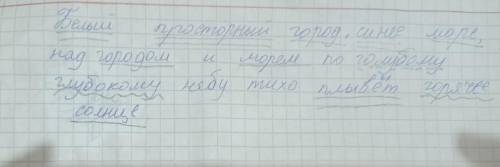 Белый просторный город, синее море,
над городом и морем по голубому
глубокому небу тихо плывёт горячее
солнце